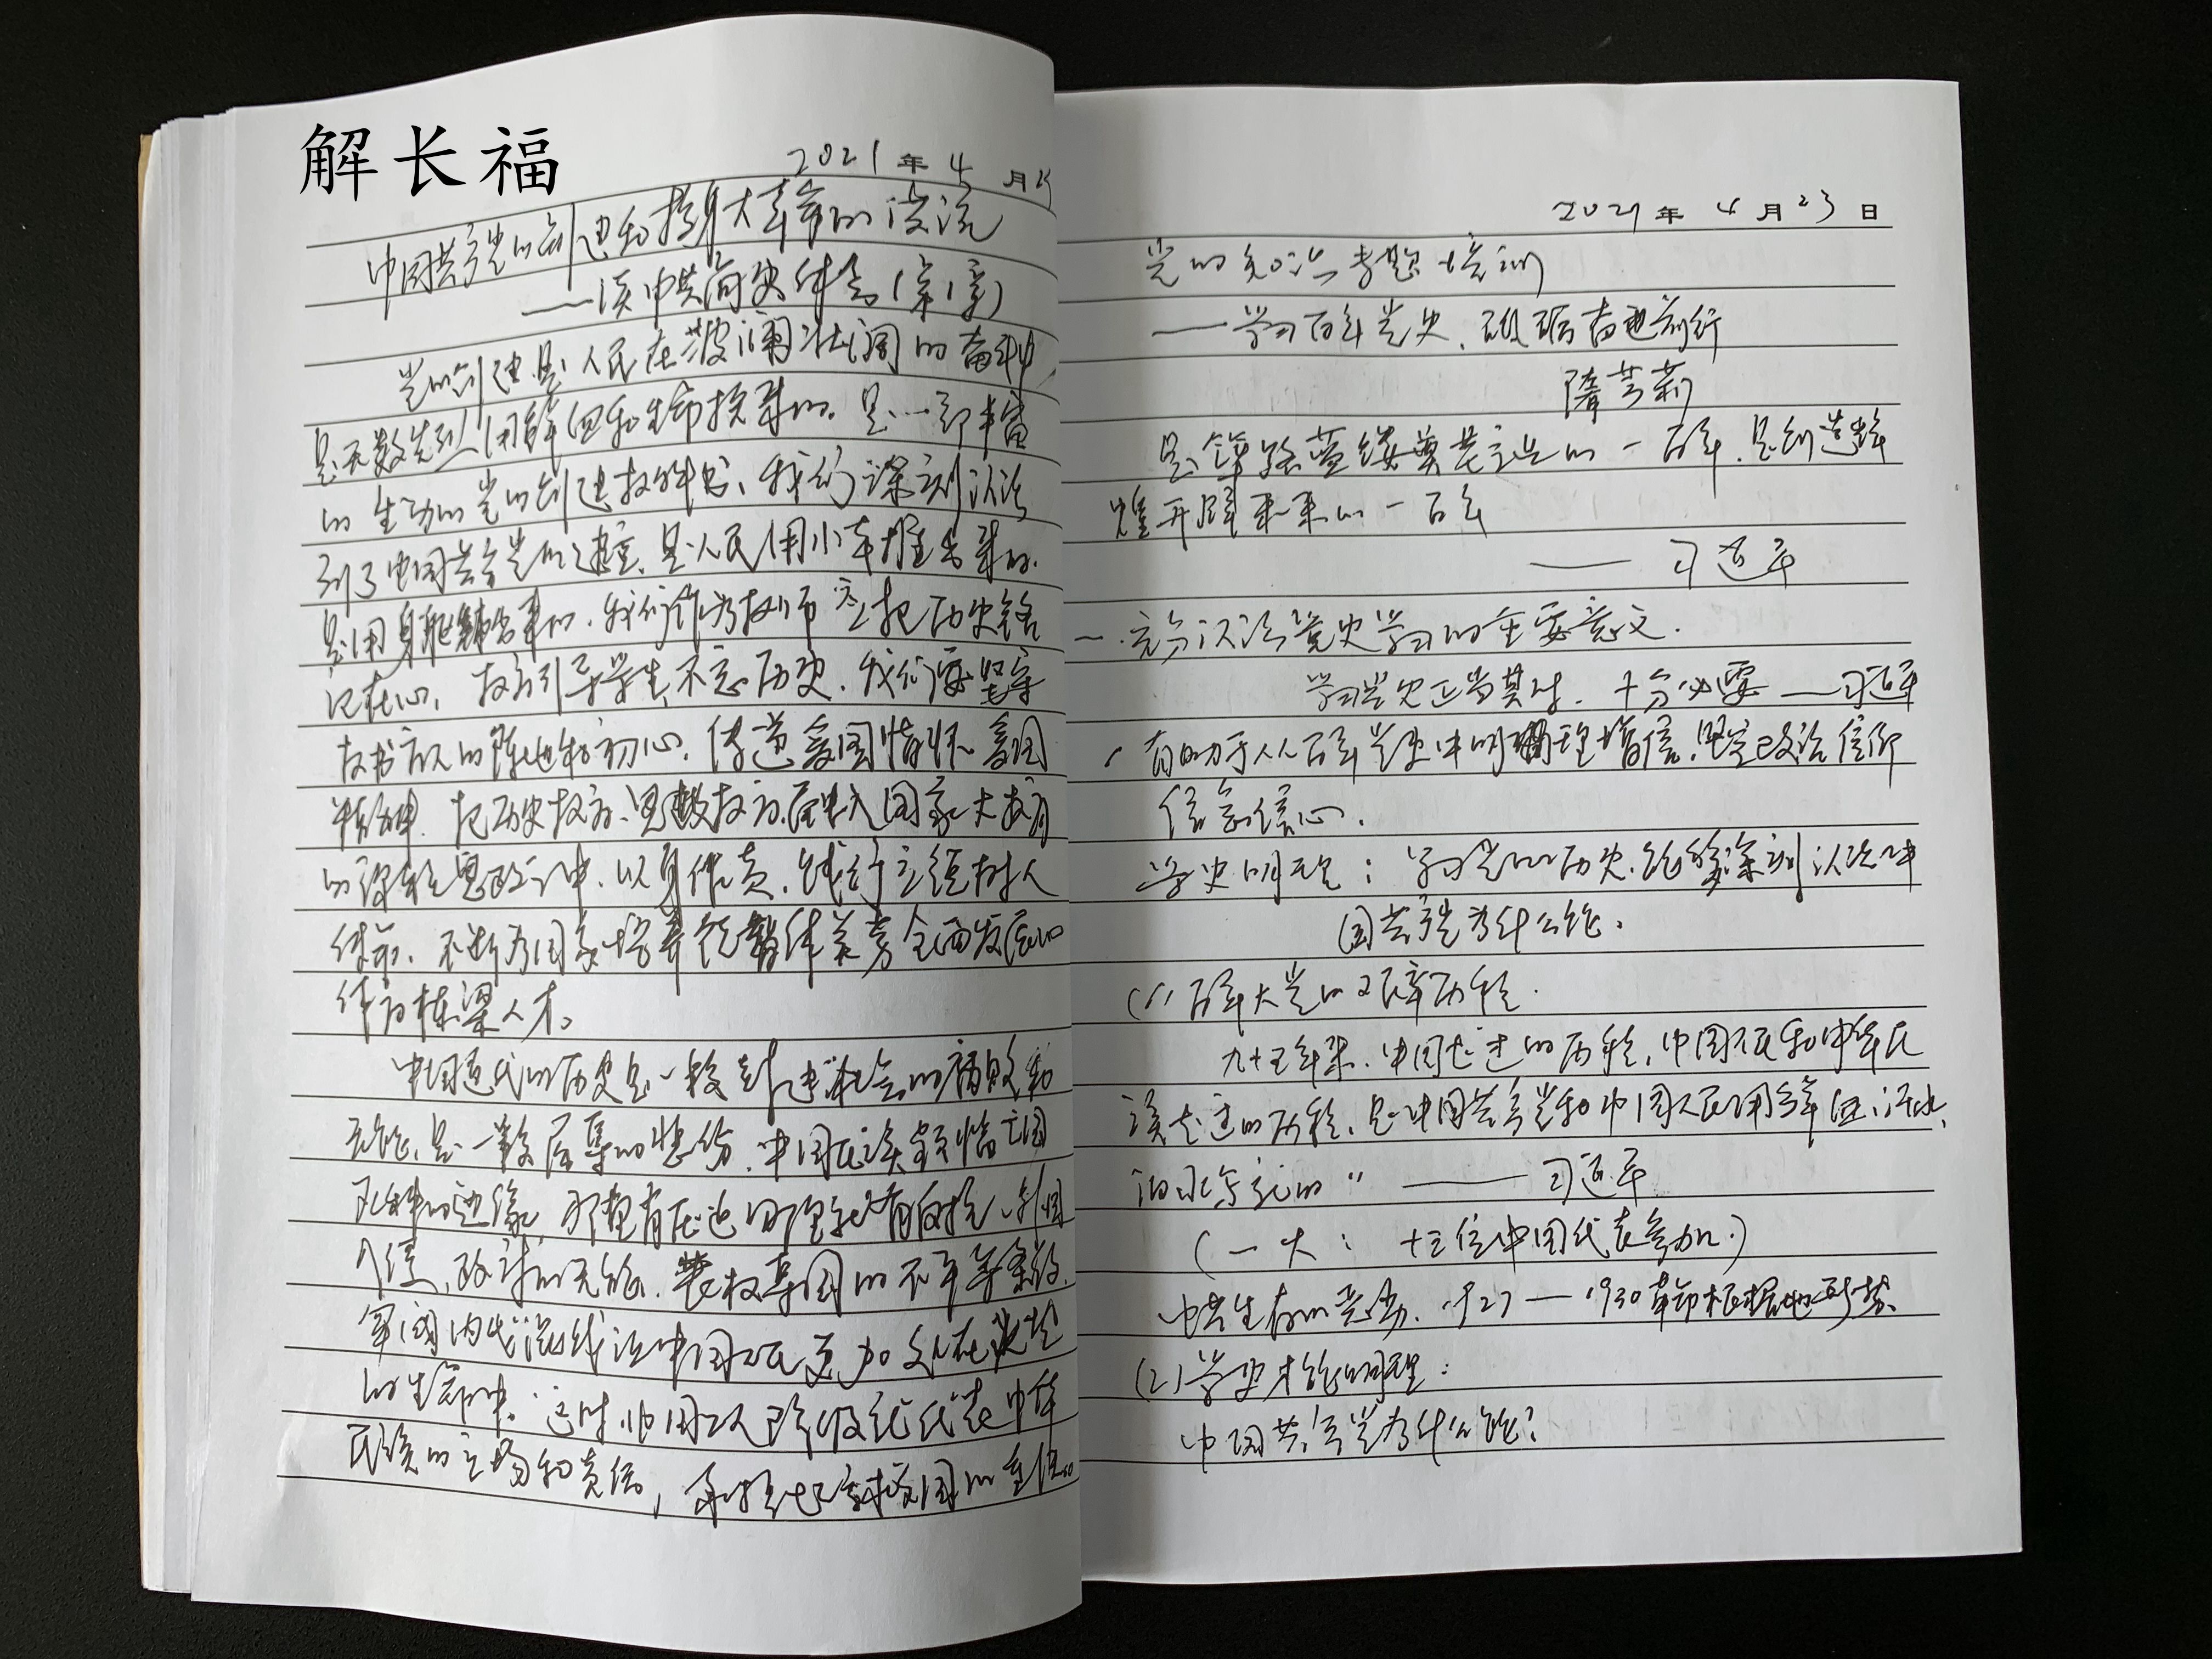 解长福
2021年4月2
中国共产党的创建和投身大革命的洪流
——读中共简史体会(第1章)
党的创建是人民在波澜壮阔的奋斗中
是无数先烈用鲜血和生命换来的。是一部丰富
的生动的党的创建教科书、我们深刻认识
到了中国共产党的建立、是人民用小车推出来的.
是用身躯铺出来的.我们作为教师应把历史铭
记在心,教育引导学生不忘历史.我们要坚守
教书育人的阵地和初心.传递爱国情怀爱国
精神.把历史教育、思政教育、融入国家大教育
的课程思政之中.以身作责.践行立德树人
使命.不断为国家培养德智体美劳全面发展的
体育栋梁人才。
中国近代的历史是一段封建社会的腐败和
无能、是一段屈辱的悲伤.中国民族频临亡国
灭种的边缘,那里有压迫哪里就有反抗、外国
入侵、政府的无能.丧权辱国的不平等条约.
军阀内战混战让中国人民更加处在水火
的生命中.这时中国工人阶级就代表中华
民族的立场和责任,承担起救国的重任。
2021年4月23日
党的知识专题培训
——学习百年党史、砥砺奋进前行
隋芳莉
是筚路蓝缕奠基立业的一百年.是创造辉
煌开辟未来的一百年
—— 习近平
一.充分认识党史学习的重要意义.
学习党史正当其时.十分必要——习近平
1 有助于从百年党史中明理增信.坚定政治信仰
信念信心.
学史明理:学习党的历史.能够深刻认识中
国共产党为什么能.
(1)百年大党的艰辛历程.
九十五年来.中国走过的历程,中国人民和中华民
族走过的历程、是中国共产党和中国人民用鲜血、汗水、
泪水写就的" —— 习近平
(一大: 十三位中国代表参加.)
中共生存的 . 1927—1930革命根据地形势
(2)学史才能明理:
中国共产党为什么能?